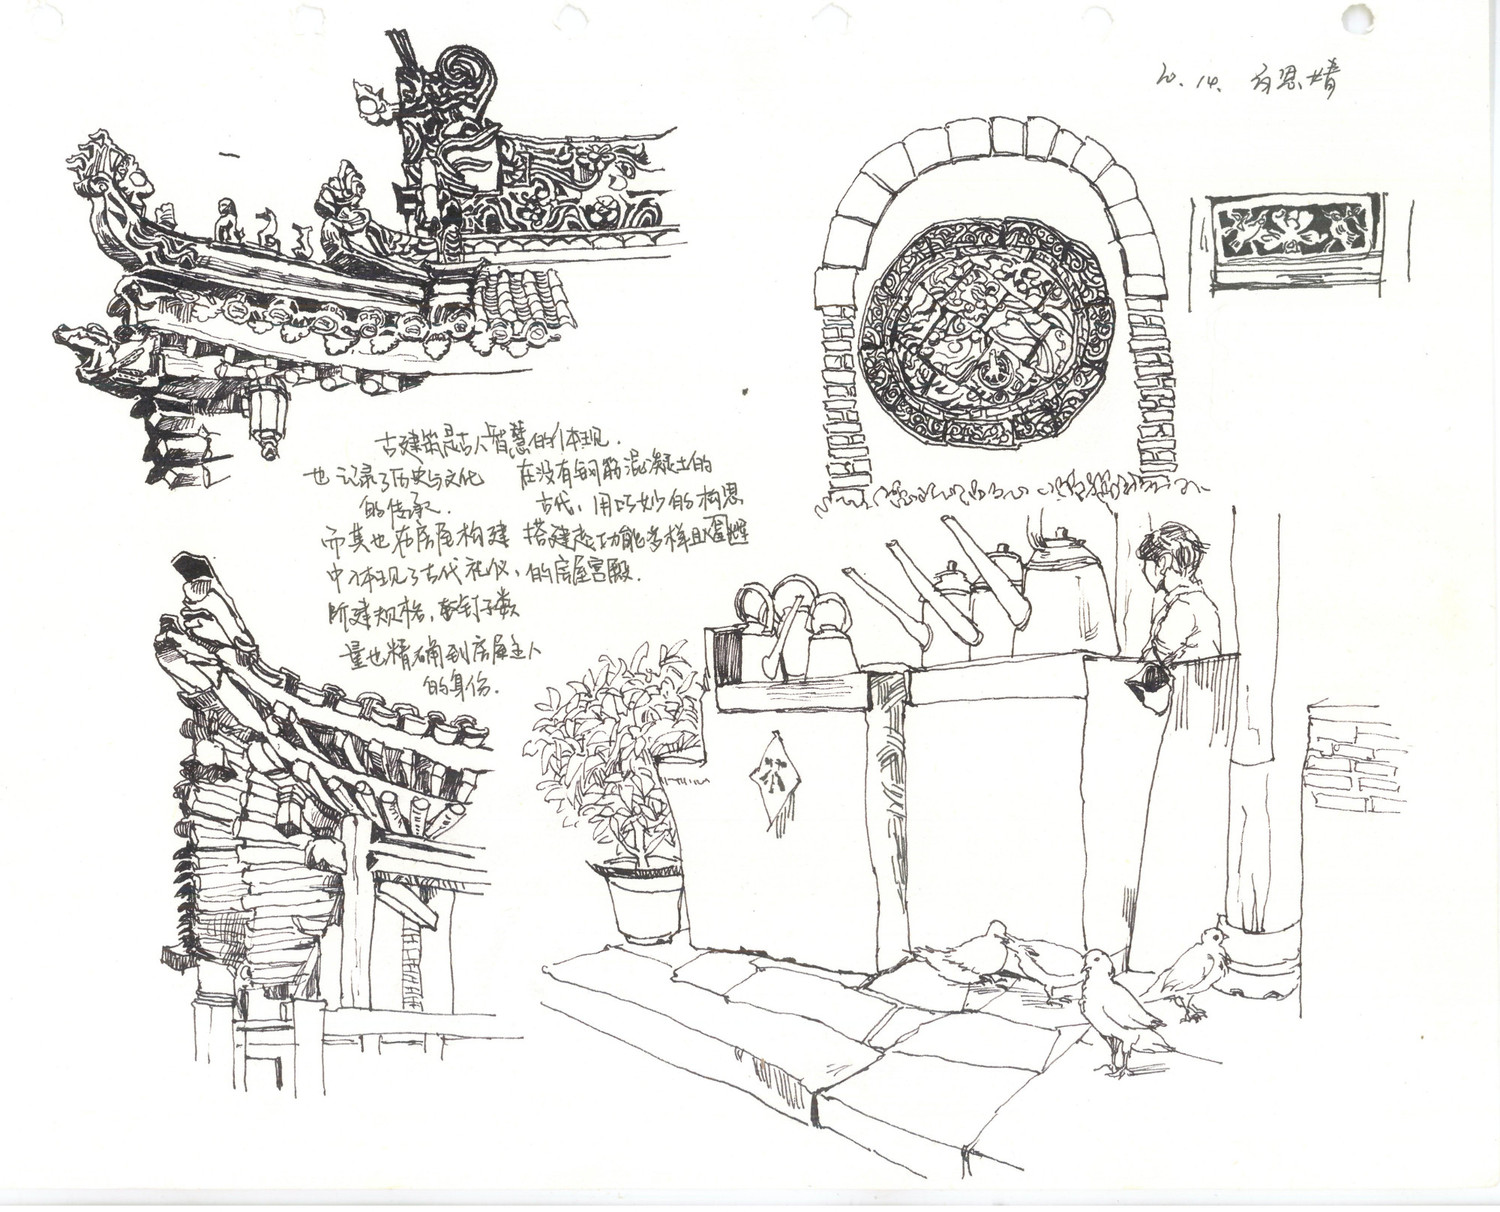 20. 14. 恩婧
古建筑是古人智慧的体现.
也记录了历史与文化
的传承.
而其也在房屋构建
中体现了古代礼仪、
所建规格,钉子数
量也精确到房屋主人
的身份.
在没有钢筋混凝土的
古代,用巧妙的构思
搭建起功能多样且
的房屋宫殿.